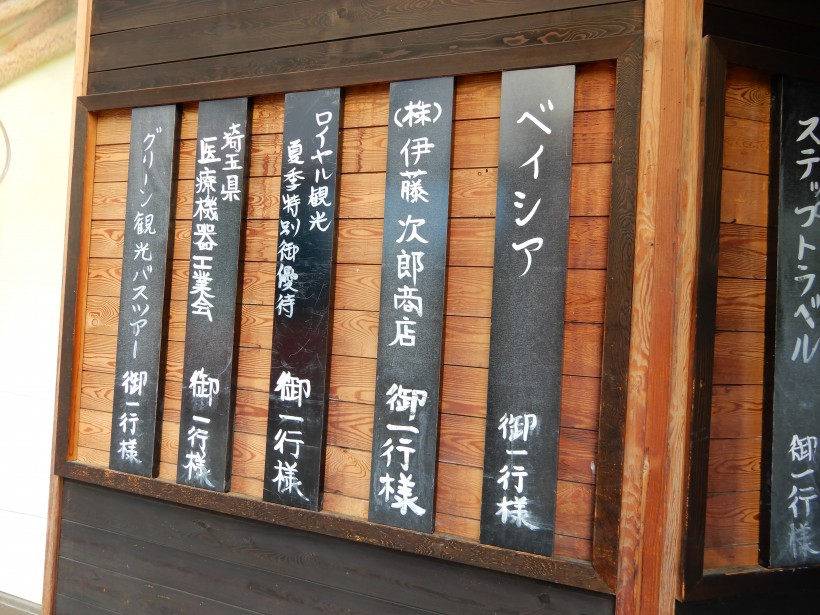 ステップトラベル
御一行様
ベイシア
御一行様
(株)伊藤次郎商店
御一行様
ロイヤル観光
夏季特別御優待
御一行様
埼玉県
医療機器工業会
御一行様
グリーン観光バスツアー
御一行様